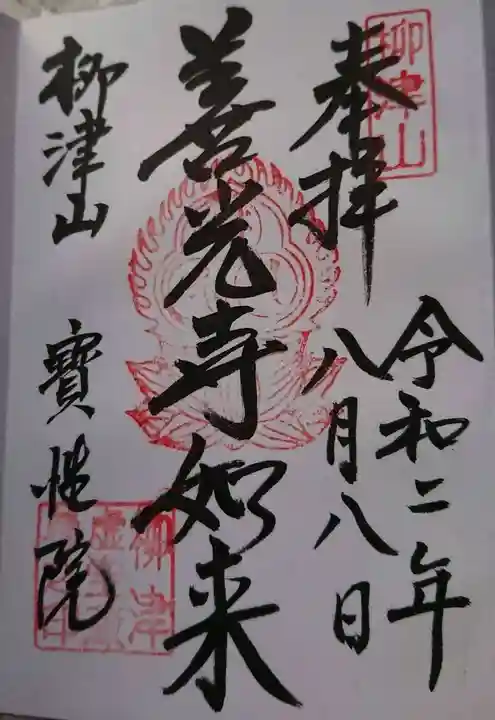 柳津山
奉拝
令和二年
八月八日
善光寺如来
柳津山 寳性院
柳津